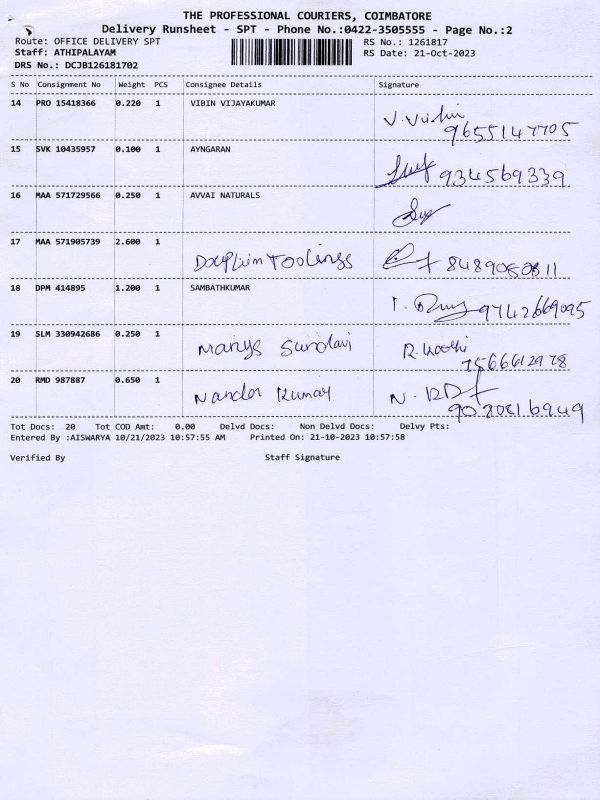 THE PROFESSIONAL COURIERS, COIMBATORE
Delivery Runsheet - SPT - Phone No.:0422-3505555 - Page No.:2
Route: OFFICE DELIVERY SPT RS No.: 1261817
Staff: ATHIPALAYAM RS Date: 21-Oct-2023
DRS No.: DCJB126181702
S No Consignment No Weight PCS Consignee Details Signature
14 PRO 15418366 0.220 1 VIBIN VIJAYAKUMAR
9655147705
15 SVK 10435957 0.100 1 AYNGARAN
934569339
16 MAA 571729566 0.250 1 AVVAI NATURALS
17 MAA 571905739 2.600 1
Toolings
18 DPM 414895 1.200 1 SAMBATHKUMAR
9742669095
19 SLM 330942686 0.250 1
20 RMD 987887 0.650 1
Nandor Kumar
Tot Docs: 20 Tot COD Amt: 0.00 Delvd Docs: Non Delvd Docs: Delvy Pts:
Entered By :AISWARYA 10/21/2023 10:57:55 AM Printed On: 21-10-2023 10:57:58
Verified By Staff Signature